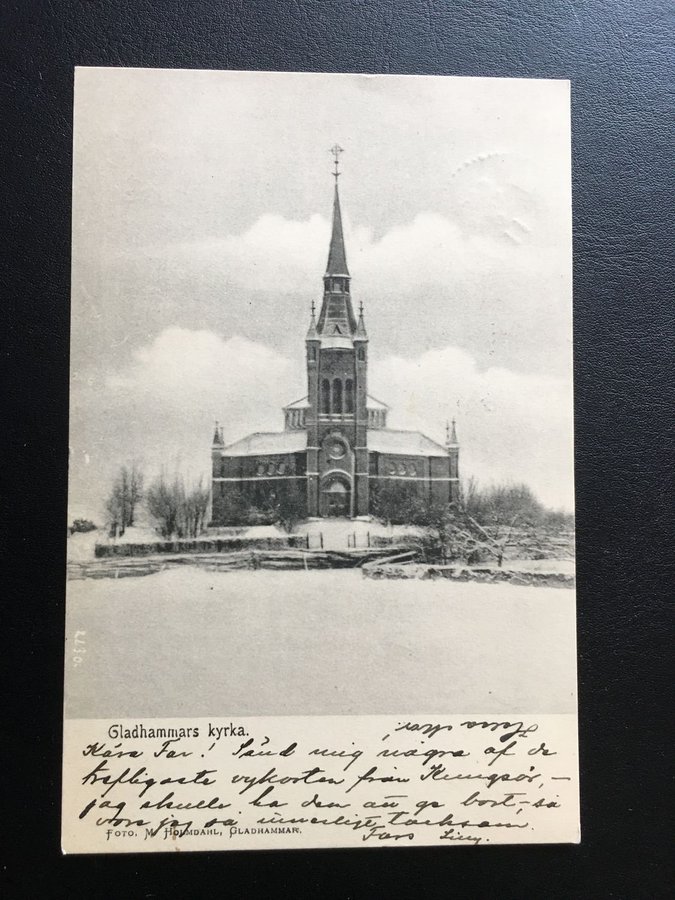 Gladhammars kyrka.
Kära Far! Sänd mig några af de
trefligaste vykorten från Kungsör, –
jag skulle ha dem att ge bort, – så
vore jag så innerligt tacksam.
Foto. M. Holmdahl, Gladhammar.
Fars Lilly.
2230.